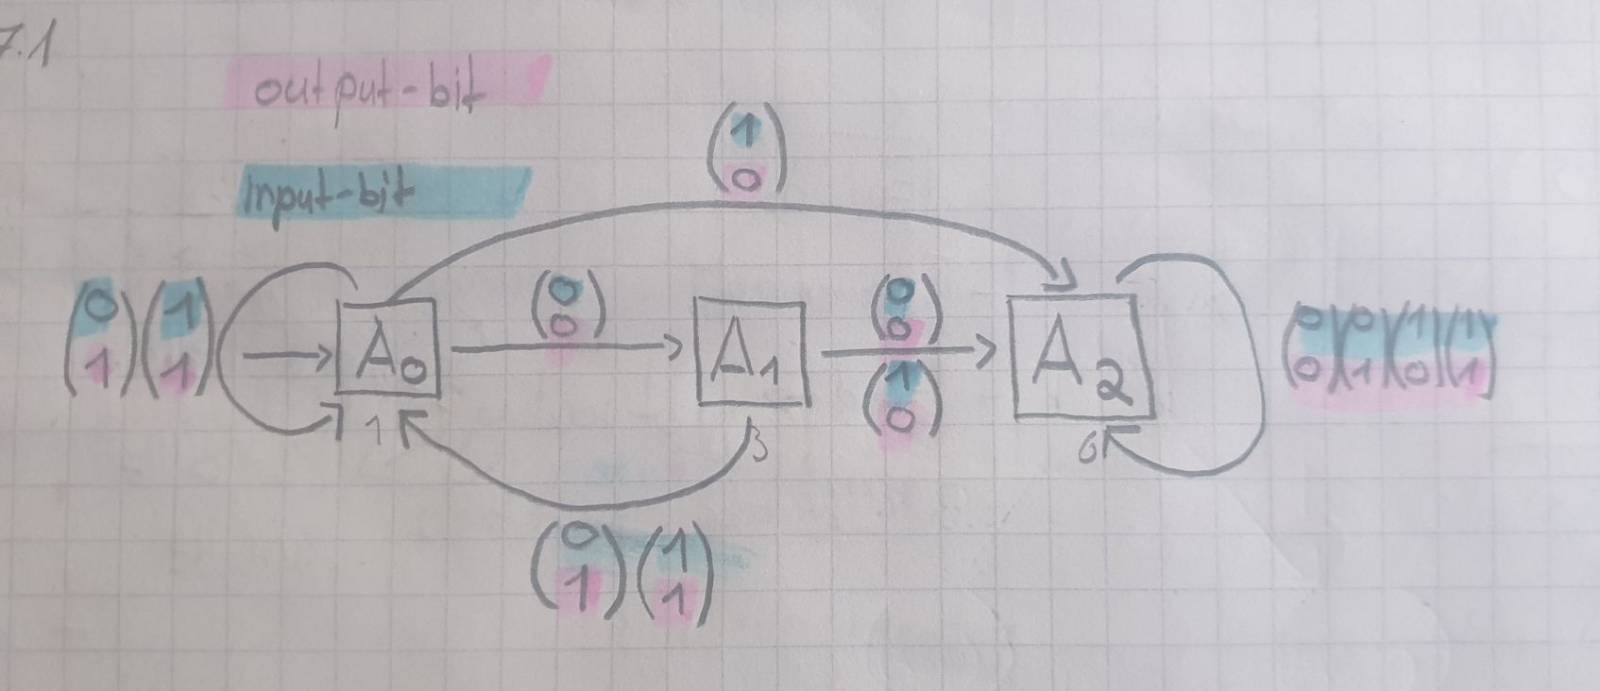 7.1
output-bit
Input-bit
(1
0)
(0
1)(1
1)
A0
(0
0)
A1
(0
0)
(1
0)
A2
(0
0)(0
1)(1
0)(1
1)
1
3
6
(0
1)(1
1)